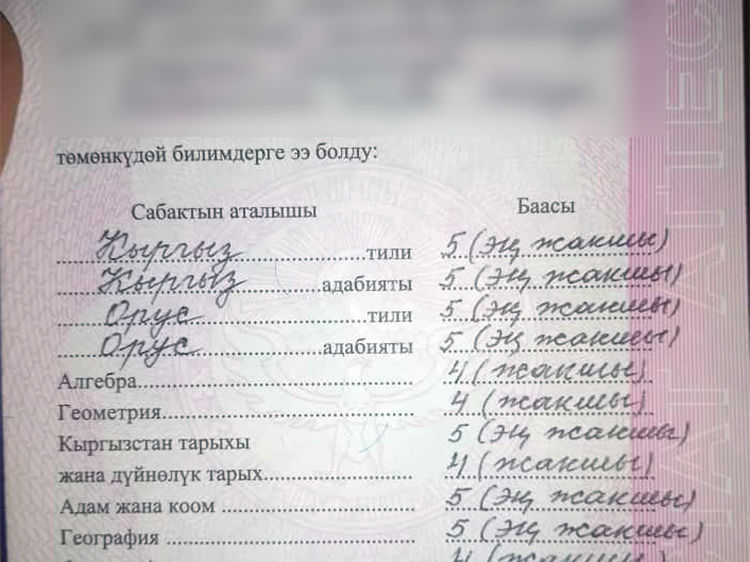 төмөнкүдөй билимдерге ээ болду:
Сабактын аталышы Баасы
Кыргыз тили 5 (эң жакшы)
Кыргыз адабияты 5 (эң жакшы)
Орус тили 5 (эң жакшы)
Орус адабияты 5 (эң жакшы)
Алгебра 4 (жакшы)
Геометрия 4 (жакшы)
Кыргызстан тарыхы 5 (эң жакшы)
жана дүйнөлүк тарых 4 (жакшы)
Адам жана коом 5 (эң жакшы)
География 5 (эң жакшы)
4 (жакшы)